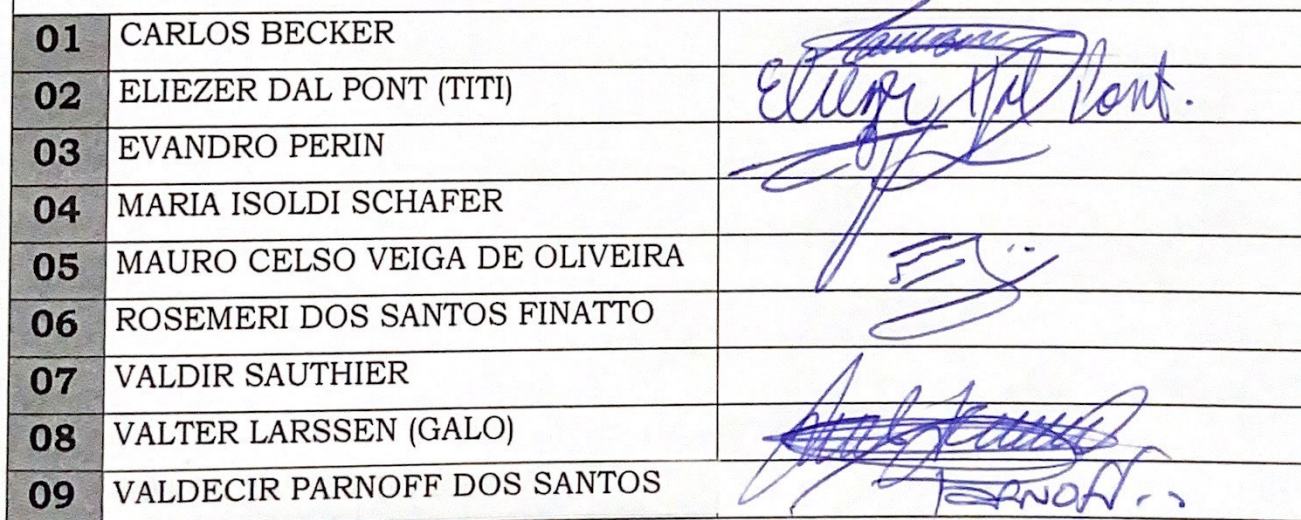 01 CARLOS BECKER
02 ELIEZER DAL PONT (TITI) Eliezer Dal Pont.
03 EVANDRO PERIN
04 MARIA ISOLDI SCHAFER
05 MAURO CELSO VEIGA DE OLIVEIRA
06 ROSEMERI DOS SANTOS FINATTO
07 VALDIR SAUTHIER
08 VALTER LARSSEN (GALO)
09 VALDECIR PARNOFF DOS SANTOS PARNOFF